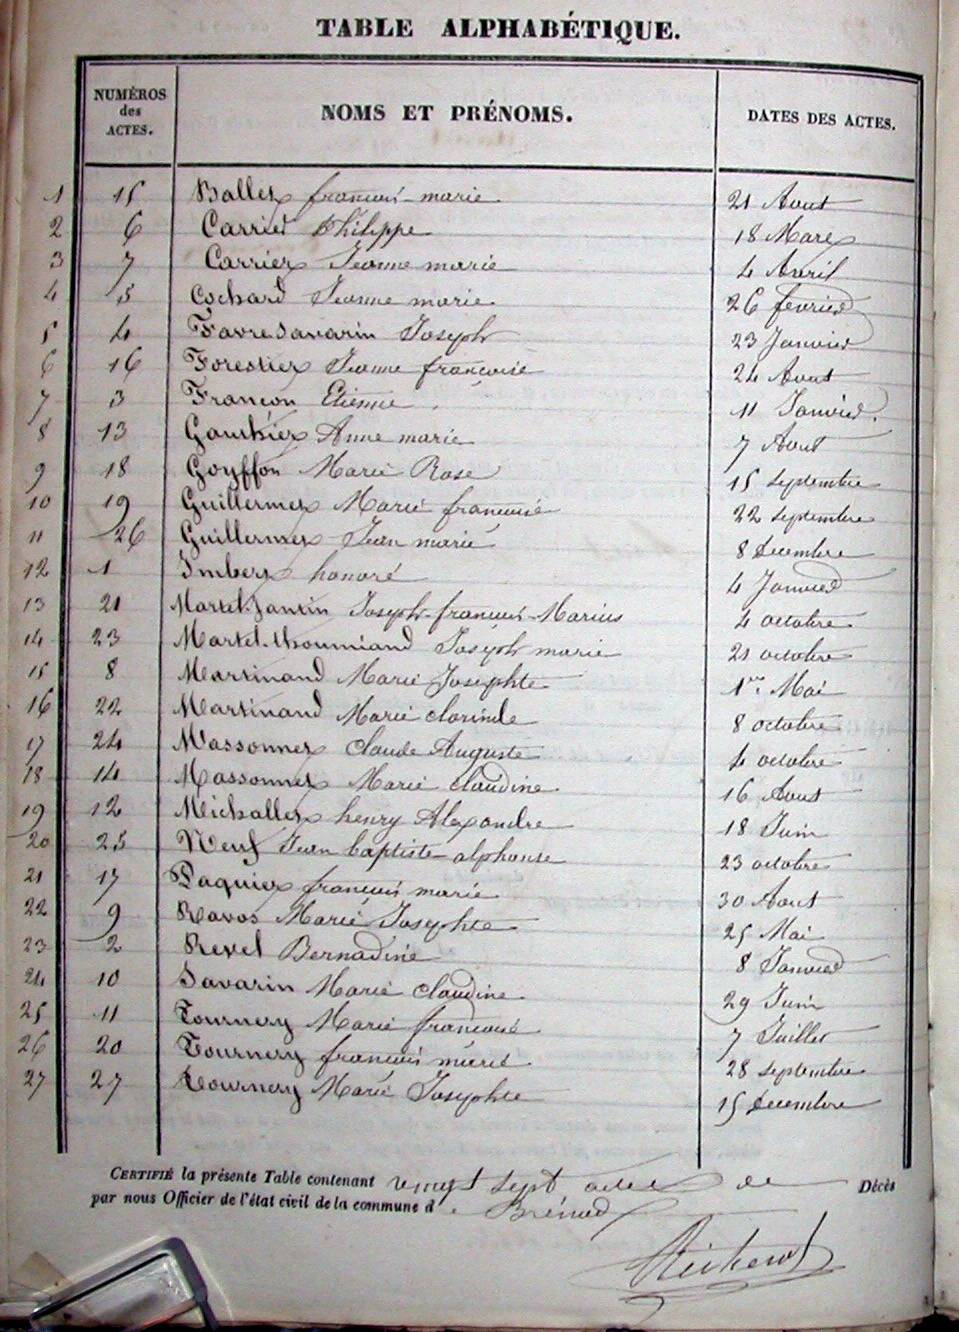 TABLE ALPHABÉTIQUE.
NUMÉROS des ACTES. NOMS ET PRÉNOMS. DATES DES ACTES.
1 15 Ballet francois-marie 21 Aout
2 6 Carrier Philippe 18 Mars
3 7 Carrier Jeanne marie 4 Avril
4 5 Cochard Jeanne marie 26 fevrier
5 4 Favre Savarin Joseph 23 Janvier
6 16 Forestier Jeanne francoise 24 Aout
7 3 Francon Etienne 11 Janvier.
8 13 Gauthier Anne marie 7 Aout
9 18 Goyffon Marie Rose 15 septembre
10 19 Guillermet Marie francoise 22 septembre
11 26 Guillermet Jean marie 8 Decembre
12 1 Imbert honoré 4 Janvier
13 21 Martel-Jantin Joseph-francois-Marius 4 octobre
14 23 Martel-thoumiand Joseph marie 21 octobre
15 8 Martinand Marie Josephte 1er. Mai
16 22 Martinand Marie clorinde 8 octobre
17 24 Massonnet Claude Auguste 4 octobre
18 14 Massonnet Marie claudine 16 Aout
19 12 Michallet henry Alexandre 18 Juin
20 25 Neuf Jean baptiste alphonse 23 octobre
21 17 Paquier francois marie 30 Aout
22 9 Ravos Marie Josephte 25 Mai
23 2 Revel Bernadine 8 Janvier
24 10 Savarin Marie claudine 29 Juin
25 11 Tournery Marie francoise 7 Juillet
26 20 Tournery francois marie 28 septembre
27 27 Tournery Marie Josephte 15 Decembre
CERTIFIÉ la présente Table contenant vingt sept actes de Décès
par nous Officier de l'état civil de la commune d e Brénod